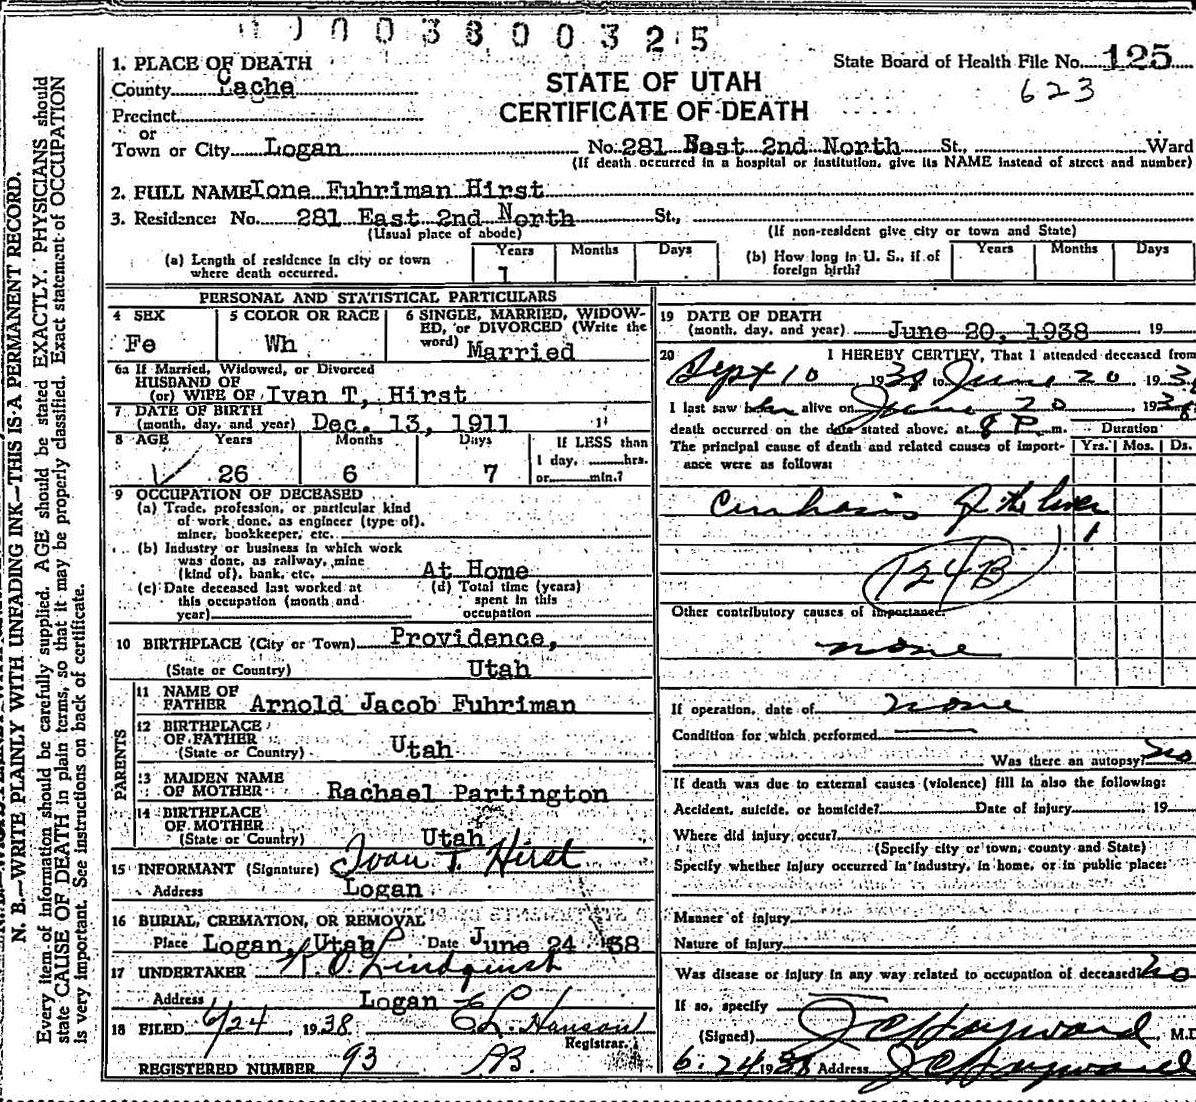 0 0 0 3 8 0 0 3 2 5
1. PLACE OF DEATH
County Cache
Precinct
or
Town or City Logan
STATE OF UTAH
CERTIFICATE OF DEATH
State Board of Health File No. 125
623
No. 281 East 2nd North St., Ward
(If death occurred in a hospital or institution, give its NAME instead of street and number)
2. FULL NAME Ione Fuhriman Hirst
3. Residence: No. 281 East 2nd North St.,
(Usual place of abode)
(If non-resident give city or town and State)
(a) Length of residence in city or town where death occurred.
Years Months Days
1
(b) How long in U. S., if of foreign birth?
Years Months Days
PERSONAL AND STATISTICAL PARTICULARS
4 SEX
Fe
5 COLOR OR RACE
Wh
6 SINGLE, MARRIED, WIDOW-
ED, or DIVORCED (Write the
word) Married
6a If Married, Widowed, or Divorced
HUSBAND OF
(or) WIFE OF Ivan T, Hirst
7 DATE OF BIRTH
(month, day, and year) Dec. 13, 1911
8 AGE Years Months Days
26 6 7
If LESS than
1 day, hrs.
or min.?
9 OCCUPATION OF DECEASED
(a) Trade, profession, or particular kind
of work done, as engineer (type of),
miner, bookkeeper, etc.
(b) Industry or business in which work
was done, as railway, mine
(kind of), bank, etc. At Home
(c) Date deceased last worked at
this occupation (month and
year)
(d) Total time (years)
spent in this
occupation
10 BIRTHPLACE (City or Town) Providence,
(State or Country) Utah
PARENTS
11 NAME OF
FATHER Arnold Jacob Fuhriman
12 BIRTHPLACE
OF FATHER
(State or Country) Utah
13 MAIDEN NAME
OF MOTHER Rachael Partington
14 BIRTHPLACE
OF MOTHER
(State or Country) Utah
15 INFORMANT (Signature) Ivan T. Hirst
Address Logan
16 BURIAL, CREMATION, OR REMOVAL
Place Logan, Utah Date June 24 '38
17 UNDERTAKER Lindquist
Address Logan
18 FILED 6/24, 1938 E L. Hanson
Registrar.
REGISTERED NUMBER 93 AB.
19 DATE OF DEATH
(month, day, and year) June 20, 1938 19
20 I HEREBY CERTIFY, That I attended deceased from
Sept 10 1938 to June 20, 193
I last saw her alive on June 20 1938
death occurred on the date stated above, at 8 P. m.
The principal cause of death and related causes of import-
ance were as follows:
Duration
Yrs. Mos. Ds.
Cirrhosis of the liver
124B
Other contributory causes of importance:
none
If operation, date of none
Condition for which performed
Was there an autopsy? no
If death was due to external causes (violence) fill in also the following:
Accident, suicide, or homicide? Date of injury 19
Where did injury occur?
(Specify city or town, county and State)
Specify whether injury occurred in industry, in home, or in public place:
Manner of injury
Nature of injury
Was disease or injury in any way related to occupation of deceased? no
If so, specify
(Signed) J C Hayward M.D
6-24 1938 Address J C Hayward
N. B.—WRITE PLAINLY WITH UNFADING INK—THIS IS A PERMANENT RECORD.
Every item of information should be carefully supplied. AGE should be stated EXACTLY. PHYSICIANS should
state CAUSE OF DEATH in plain terms, so that it may be properly classified. Exact statement of OCCUPATION
is very important. See instructions on back of certificate.